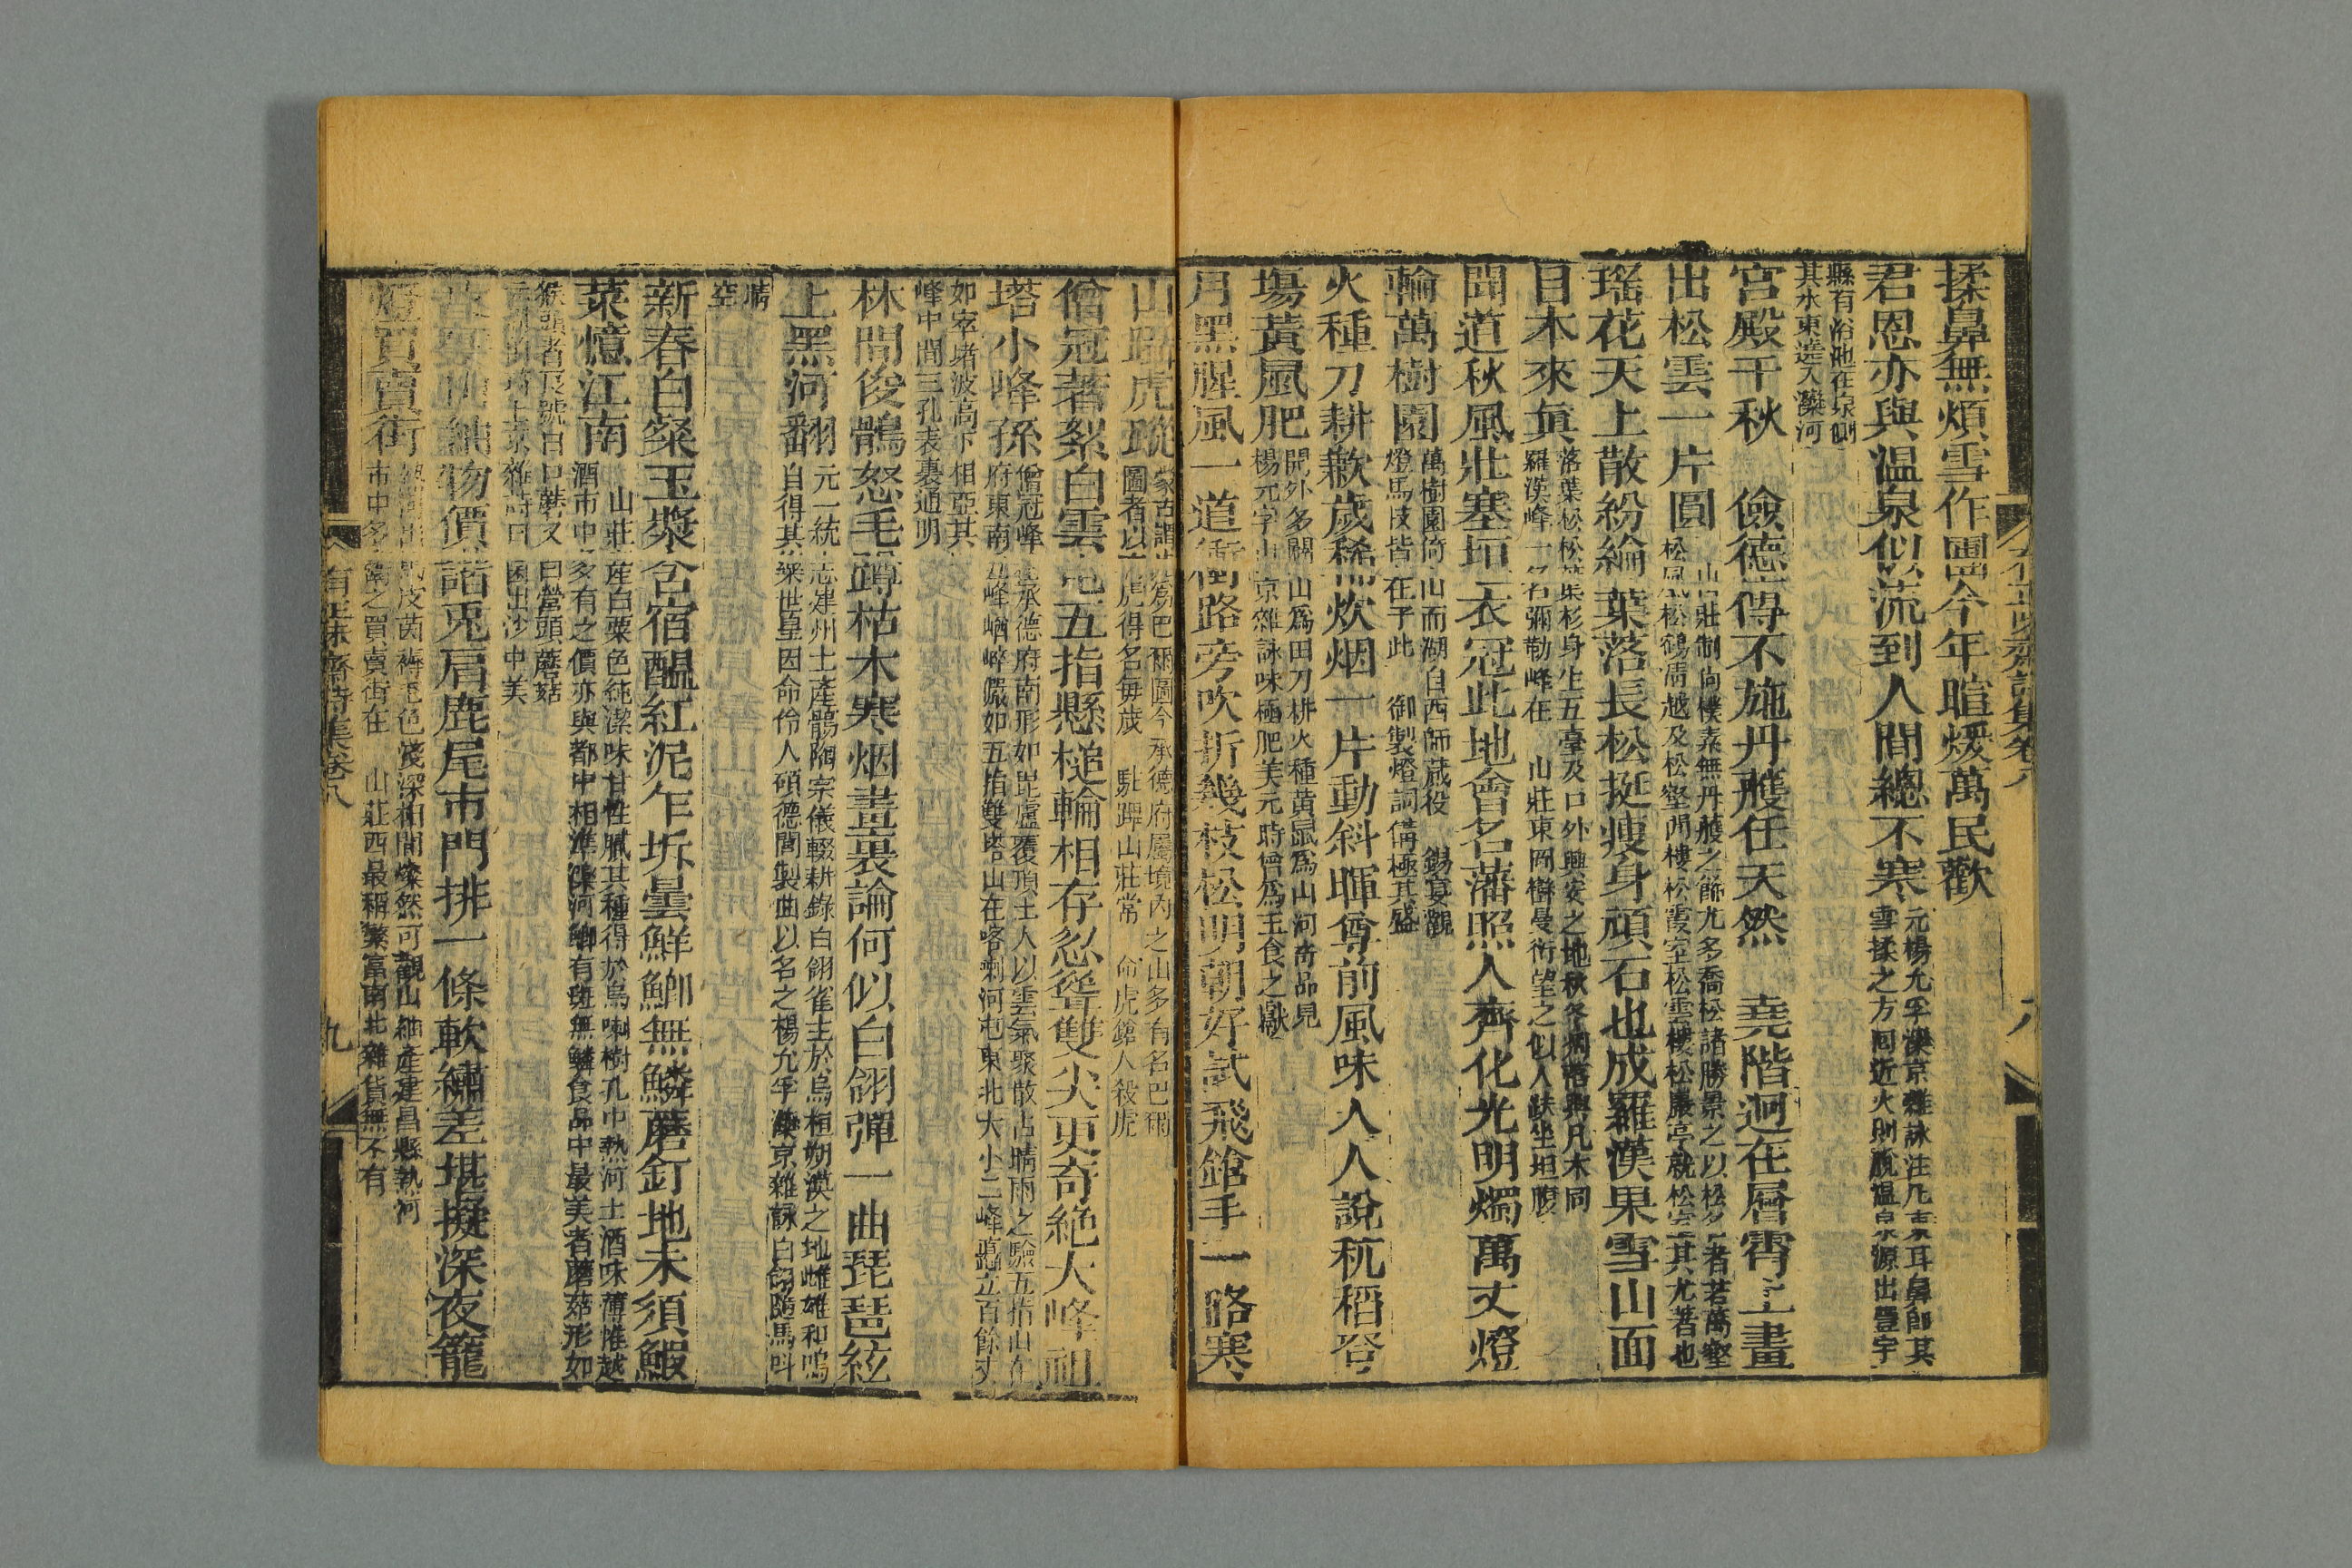 揉鼻無煩雪作團今年暄煖萬民歡
君恩亦與温泉似流到人間總不寒
元楊允孚灤京雜詠注凡凍耳鼻即其
雪揉之方回近火則脫温泉源出豐宇
縣有浴池在泉側
其水東逆入灤河
宮殿千秋 儉德傳不施丹雘任天然 堯階迥在層霄上畫
出松雲一片圓
山莊制尚樸素無丹雘之飾尤多喬松諸勝景之以松名者若萬壑
松風松鶴清越及松壑間樓松霞室松雲樓松巖亭就松室其尤著也
瑶花天上散紛綸葉落長松挺瘦身頑石也成羅漢果雪山面
目本來真
落葉松松葉杉身生五臺及口外興安之地秋冬凋落與凡木同
羅漢峰一名彌勒峰在 山莊東岡辯曼衍望之似人趺坐坦腹
聞道秋風壯塞垣衣冠此地會名藩照人齊化光明燭萬丈燈
輪萬樹園
萬樹園倚山而湖自西師蕆役 錫宴觀
燈馬伎皆在于此 御製燈詞備極其盛
火種刀耕歉歲稀炊烟一片動斜暉尊前風味人人說秔稻登
塲黃鼠肥
開外多關山為田刀耕火種黃鼠為山河奇品見
楊元字山京雜詠味極肥美元時曾為玉食之獻
月黑腥風一道衝路旁吹折幾枝松明朝好試飛鎗手一路寒
山踏虎蹤
蒙古謂虎為巴爾圖今承德府屬境內之山多有名巴爾
圖者以虎得名每歲 駐蹕山莊常 命虎鎗人殺虎
僧冠著絮白雲屯五指懸槌輪相存忽聳雙尖更奇絶大峰祖
塔小峰孫
僧冠峰在承德府南形如毘盧覆頂土人以雲氣聚散占晴雨之驗五指山在
府東南五峰崷崒儼如五指雙塔山在喀喇河屯東北大小二峰矗立百餘丈
如窣堵波高下相亞其
峰中間三孔表裏通明
林間俊鶻怒毛蹲枯木寒烟畫裏論何似白翎彈一曲琵琶絃
上黑河翻
元一統志建州土產鶻陶宗儀輟耕錄白翎雀生於烏桓朔漠之地雌雄和鳴
自得其樂世皇因命伶人碩德閭製曲以名之楊允孚灤京雜詠白翎隨馬叫
晴
空
新春白粲玉漿含宿醖紅泥乍坼曇鮮鯽無鱗蘑釘地未須鰕
菜憶江南
山莊產白粟色純潔味甘性膩其種得於烏喇樹孔中熱河土酒味薄惟越
酒市中多有之價亦與都中相準灤河鯽有斑無鱗食品中最美者蘑菇形如
猴頭者良號白口蘑又曰營頭蘑菇
物價諧兎肩鹿尾市門排一條軟繡差堪擬深夜籠
燈買賣街
皮茵褥毛色淺深相間燦然可觀山紬產建昌縣熱河
市中多有之買賣街在 山莊西最稱繁富南北雜貨無不有
有正味齋詩集卷八
九